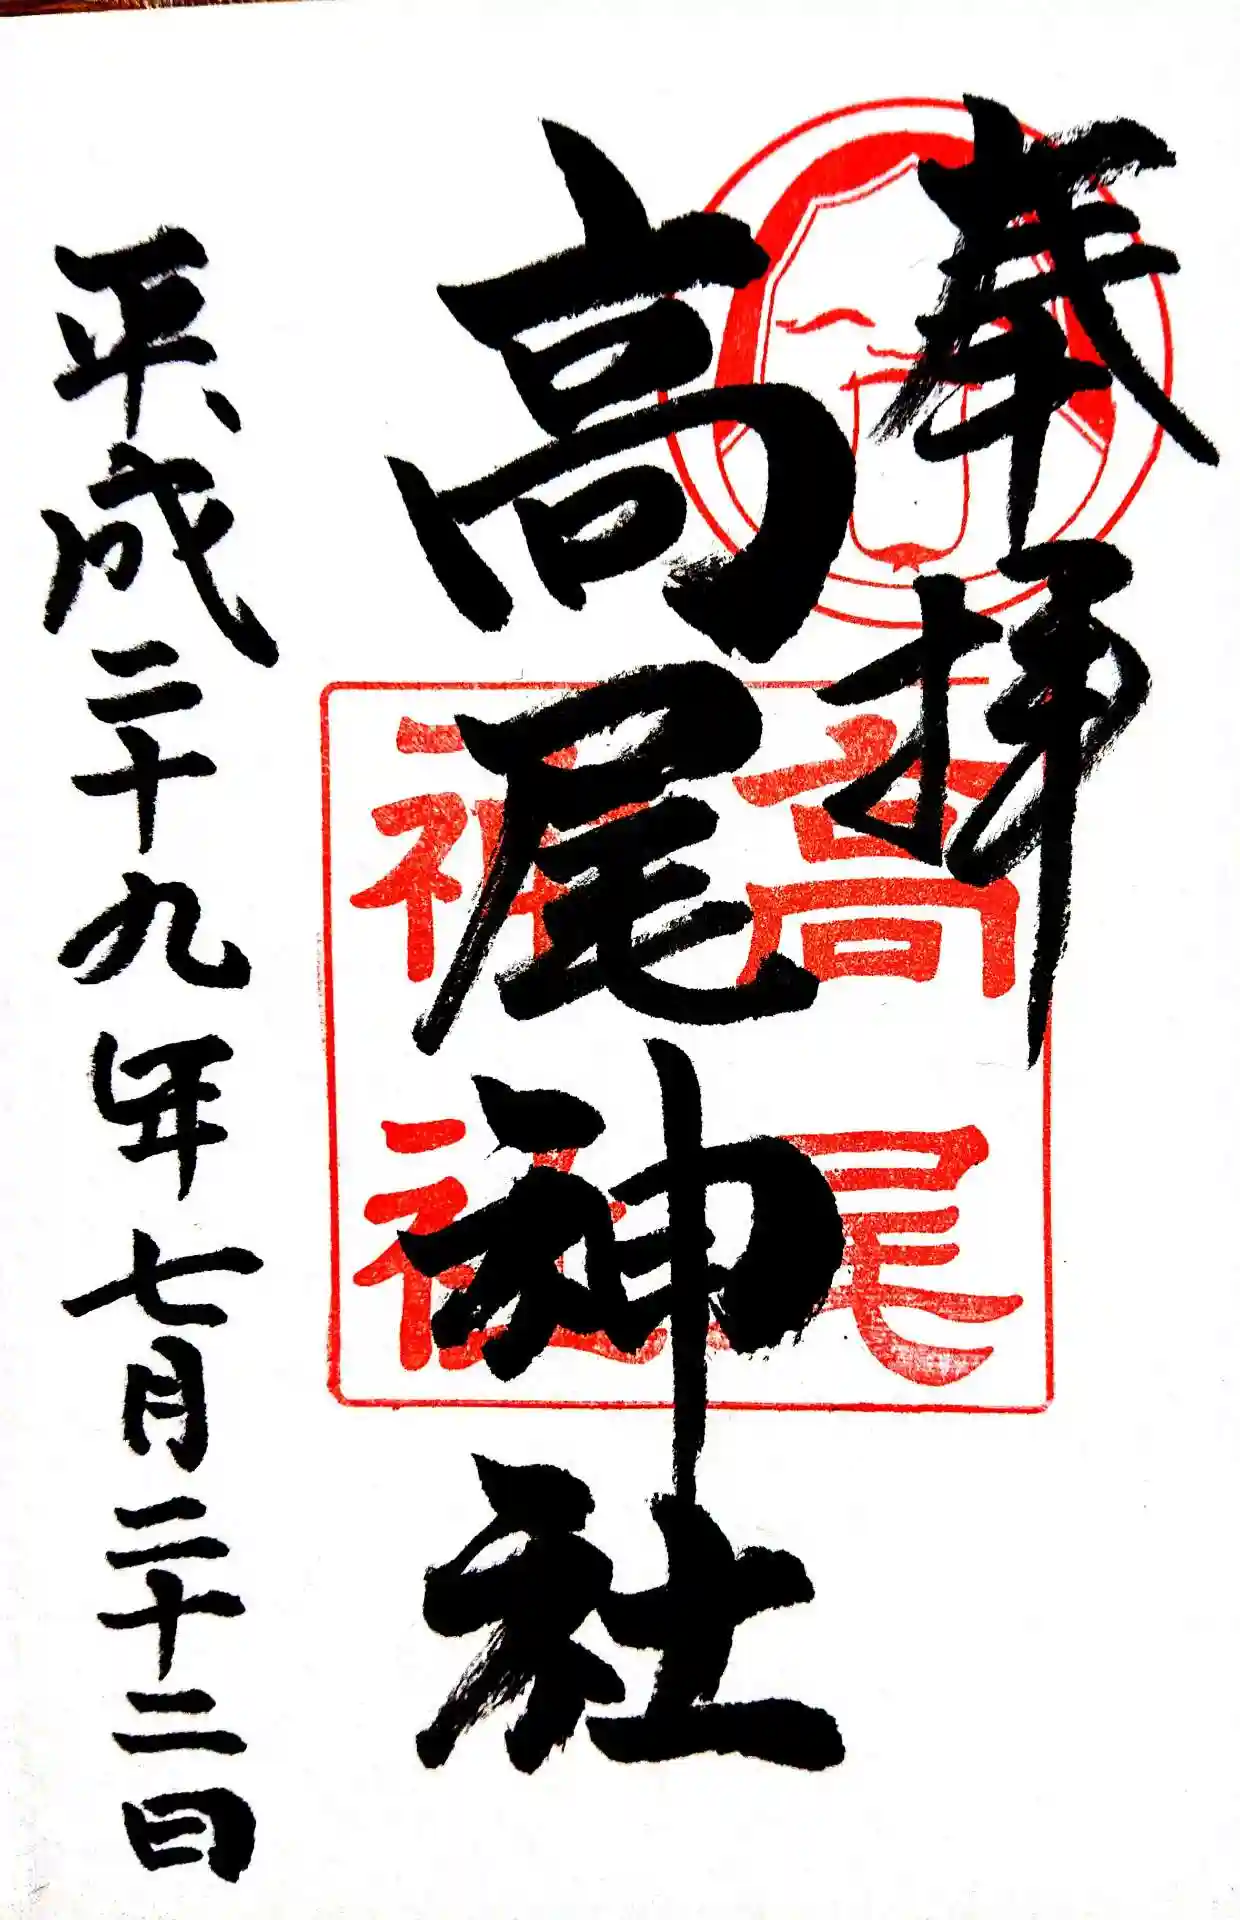 奉拝
高尾神社
高尾
神社
平成二十九年七月二十二日